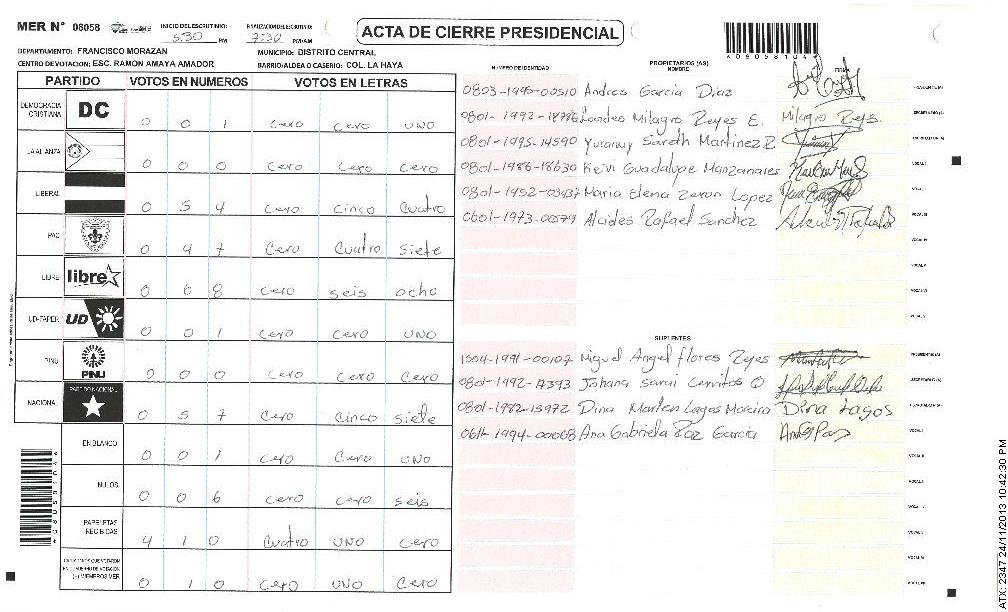 MER Nº 08058 INICIO DEL ESCRUTINIO: 5:30 PM FINALIZACION DEL ESCRUTINIO: 7:30 PM/AM
ACTA DE CIERRE PRESIDENCIAL
DEPARTAMENTO: FRANCISCO MORAZAN MUNICIPIO: DISTRITO CENTRAL
CENTRO DE VOTACION: ESC. RAMON AMAYA AMADOR BARRIO/ALDEA O CASERIO: COL. LA HAYA
PARTIDO VOTOS EN NUMEROS VOTOS EN LETRAS
DEMOCRACIA CRISTIANA DC 0 0 1 Cero Cero UNO
LA ALIANZA 0 0 0 Cero Cero Cero
LIBERAL 0 5 4 Cero Cinco Cuatro
PAC 0 4 7 Cero Cuatro Siete
LIBRE libre 0 6 8 Cero seis ocho
UD-FAPER UD 0 0 1 Cero Cero UNO
PINU PINU 0 0 0 Cero Cero Cero
NACIONAL PARTIDO NACIONAL 0 5 7 Cero Cinco siete
EN BLANCO 0 0 1 Cero Cero UNO
NULOS 0 0 6 Cero cero seis
PAPELETAS RECIBIDAS 4 1 0 Cuatro UNO Cero
0 1 0 Cero UNO Cero
NUMERO DE IDENTIDAD PROPIETARIOS (AS) NOMBRE FIRMA
0803-1995-00510 Andres Garcia Diaz
0801-1992- Lourdes Milagro Reyes E. Milagro Reyes.
0801-1995-14590 Sareth Martinez R
0801-1986-18630 Keivi Guadalupe Manzanares
0801-1952-03937 Maria Elena Zeron Lopez
0601-1973-00579 Alcides Rafael Sanchez
SUPLENTES
1504-1991-00107 Miguel Angel flores Reyes
0801-1992-17393 Johana Sarai Cerritos O
0801-1982-15972 Dina Marlen Lagos Moreira Dina Lagos
0611-1994-00068 Ana Gabriela Paz Garcia
ATX: 2347 24/11/2013 10:42:30 PM